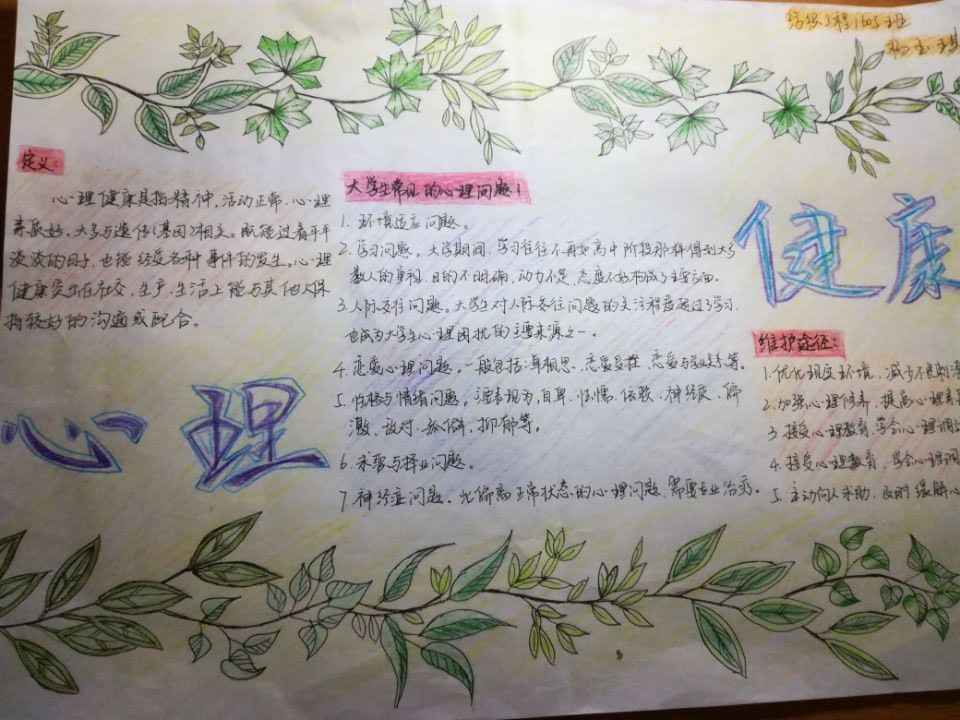 纺织工程1605班
定义:
心理健康是指精神,活动正常、心理
素质好。大多与遗传(基因)相关。既能过着平平
淡淡的日子,也能经受各种事件的发生。心理
健康突出在社交、生产、生活上能与其他人保
持较好的沟通或配合。
心理
大学生常见的心理问题:
1. 环境适应问题。
2. 学习问题。大学期间,学习往往不再如高中阶段那样得到大多
数人的重视,目的不明确,动力不足,态度不好构成了主要方面。
3. 人际交往问题。大学生对人际交往问题的关注程度超过了学习,
也成为大学生心理困扰的主要来源之一。
4. 恋爱心理问题。一般包括:单相思、恋爱受挫、恋爱与学业关系等。
5. 性格与情绪问题。主要表现为自卑、怯懦、依赖、神经质、偏
激、敌对、孤僻、抑郁等。
6. 求职与择业问题。
7. 神经症问题。比偏离正常状态的心理问题,需要专业治疗。
健康
维护途径:
1. 优化现实环境,减少不良刺激
2. 加强心理修养,提高心理素
3. 接受心理教育,学会心理调适
4. 接受心理教育,学会心理调
5. 主动向人求助,及时缓解心